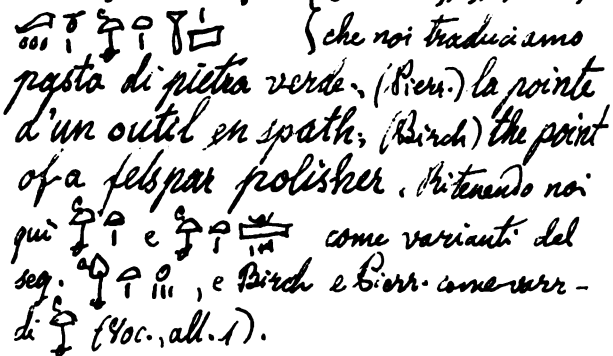 che noi traduciamo
pasta di pietra verde, (Pierr.) la pointe
d'un outil en spath; (Birch) the point
of a felspar polisher. Ritenendo noi
qui e come varianti del
seg. , e Birch e Pierr. come varr-
di (Voc., all. 1).